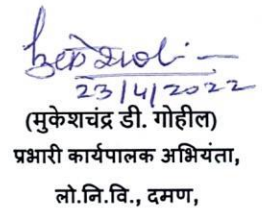 23/4/2022
(मुकेशचंद्र डी. गोहील)
प्रभारी कार्यपालक अभियंता,
लो.नि.वि., दमण,